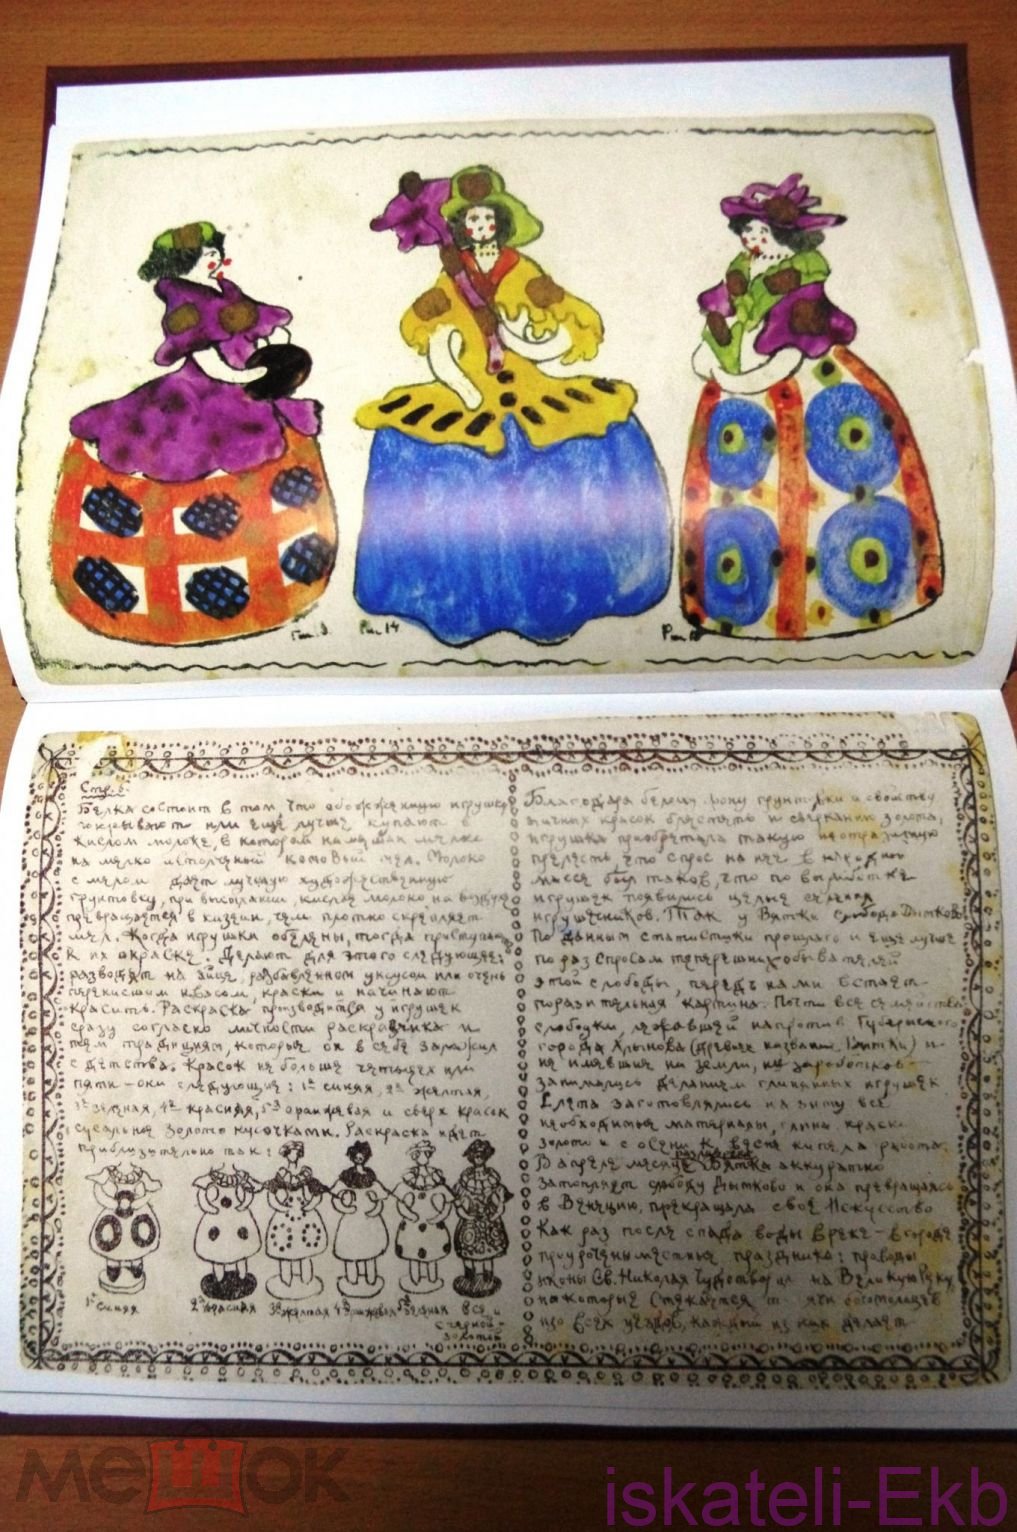 Рис. 14
Стр. 5.
Белка состоит в том, что обожженную игрушку
покрывают или ещё лучше купают в
кислом молоке, в котором намешан мелко
на мелко истолченый комовый мел. Молоко
с мелом дает лучшую художественную
грунтовку, при высыхании, кислое молоко на воздухе
превращается в казеин, чем плотно скрепляет
мел. Когда игрушки обелены, тогда приступают
к их окраске. Делают для этого следующее:
разводят на яйце, разбавленном уксусом или очень
перекисшим квасом, краски и начинают
красить. Раскраска производится у игрушек
сразу согласно личности раскравчика и
тем традициям, которые он в себе заложил
с детства. Красок не больше четырех или
пяти - они следующие: 1ая синяя, 2ая желтая,
3ая зеленая, 4ая красная, 5ая оранжевая и сверх красок
сусальное золото кусочками. Раскраска идет
приблизительно так:
1ая синяя
2ая красная 3ая желтая 4ая рыжевая 5ая зеленая вся и
с черной и
золотой
Благодаря белому фону грунтовки и свойству
яичных красок блестеть и сверканию золота,
игрушка приобретала такую неотразимую
прелесть, что спрос на нее в народной
массе был таков, что по выработке
игрушек появились целые селения
игрушечников. Так у Вятки слобода Дымково
По данным статистики прошлого и еще лучше
по раз спросам теперешних обывателей
этой слободы, перед нами встает
поразительная картина. Почти все семейства
слободки, лежавшей напротив Губернского
города Хлынова (древнее название Вятки) и
не имевшие ни земли, ни заработков
занимались деланием глиняных игрушек
С лета заготовлялись на зиму все
необходимые материалы, глина, краски
золото и с осени к весне кипела работа.
В апреле месяце Вятка аккуратно
затопляет слободу Дымково и она превращаясь
в Венецию, прекращала свое Искусство
Как раз после спада воды в реке - в городе
приурочены местные праздники: проводы
иконы Св. Николая Чудотворца на Великую Реку
на которые стекается богомольцев
изо всех уездов, каждый из них делает
мешок
iskateli-Ekb